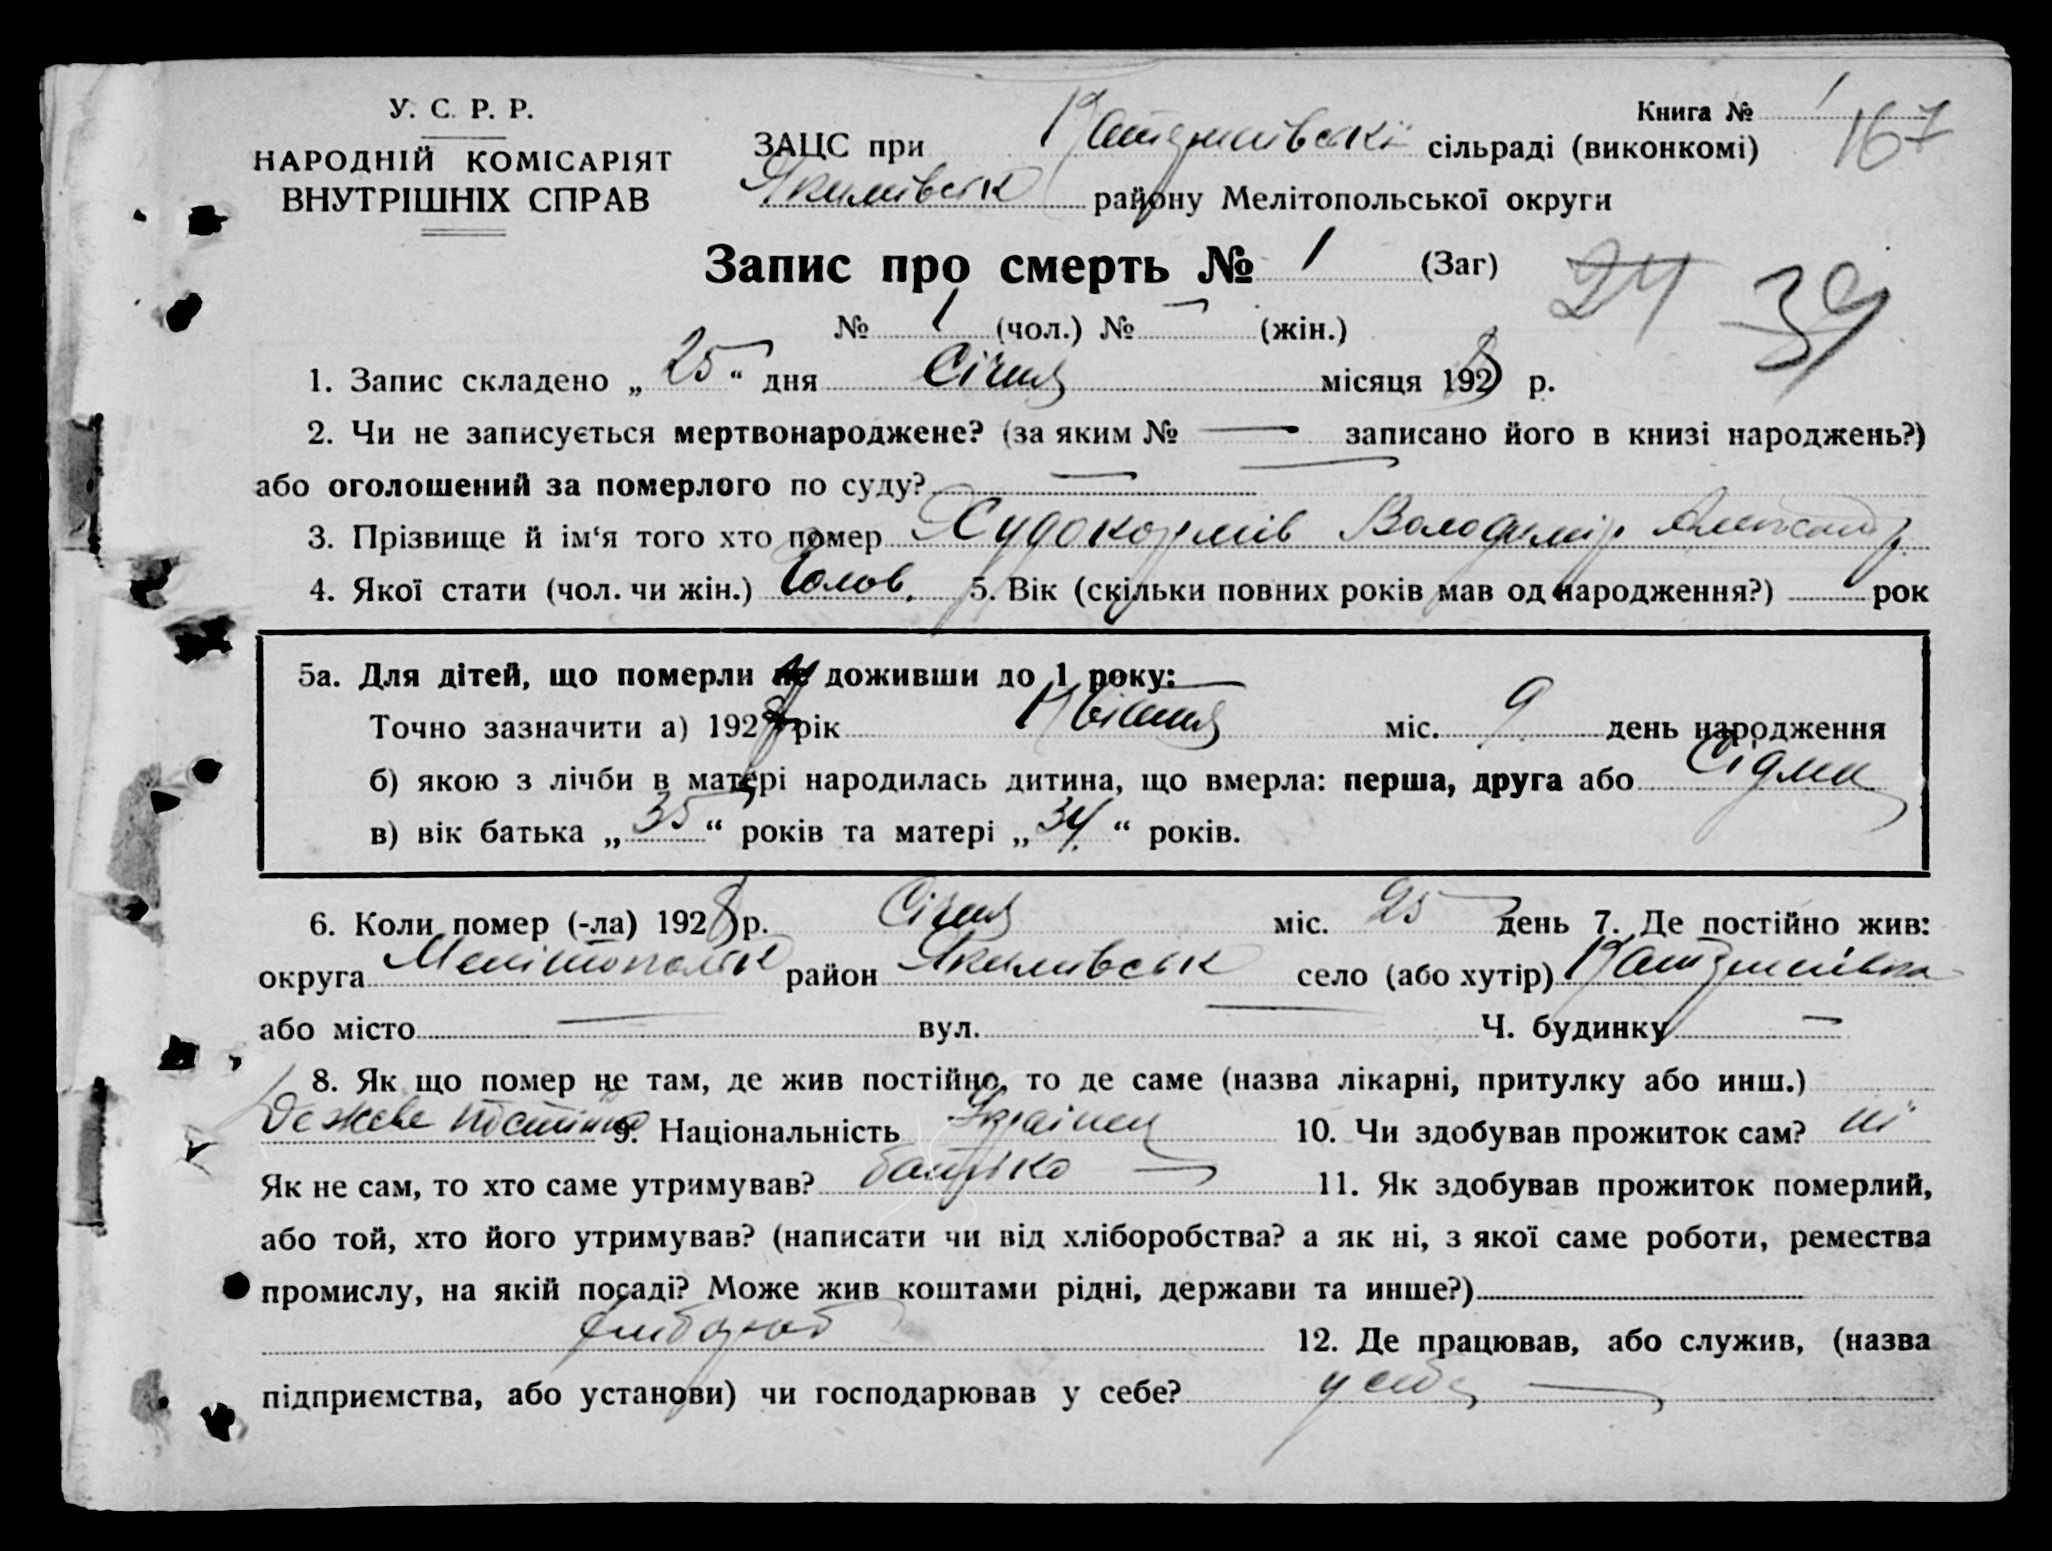 У. С. Р. Р.
НАРОДНІЙ КОМІСАРІЯТ
ВНУТРІШНІХ СПРАВ
Книга № 1
167
ЗАЦС при сільраді (виконкомі)
Якимівськ району Мелітопольської округи
Запис про смерть № 1 (Заг)
24 39
№ 1 (чол.) № — (жін.)
1. Запис складено „ 25 “ дня Січня місяця 1928 р.
2. Чи не записується мертвонароджене? (за яким № — записано його в книзі народжень?)
або оголошений за померлого по суду? —
3. Прізвище й ім‘я того хто помер Худокормів Володимір Александр
4. Якої стати (чол. чи жін.) Чолов. 5. Вік (скільки повних років мав од народження?) рок
5а. Для дітей, що померли не доживши до 1 року:
Точно зазначити а) 192 рік Квітня міс. 9 день народження
б) якою з лічби в матері народилась дитина, що вмерла: перша, друга або Сідма
в) вік батька „ 35 “ років та матері „ 34 “ років.
6. Коли помер (-ла) 1928 р. Січня міс. 25 день 7. Де постійно жив:
округа Мелітопольськ район Якимивськ село (або хутір)
або місто — вул. — Ч. будинку —
8. Як що помер не там, де жив постійно, то де саме (назва лікарні, притулку або инш.)
де живе постійно 9. Національність Українец 10. Чи здобував прожиток сам? ні
Як не сам, то хто саме утримував? батько 11. Як здобував прожиток померлий,
або той, хто його утримував? (написати чи від хліборобства? а як ні, з якої саме роботи, ремества
промислу, на якій посаді? Може жив коштами рідні, держави та инше?)
хлибороб
12. Де працював, або служив, (назва
підприємства, або установи) чи господарював у себе? у себе